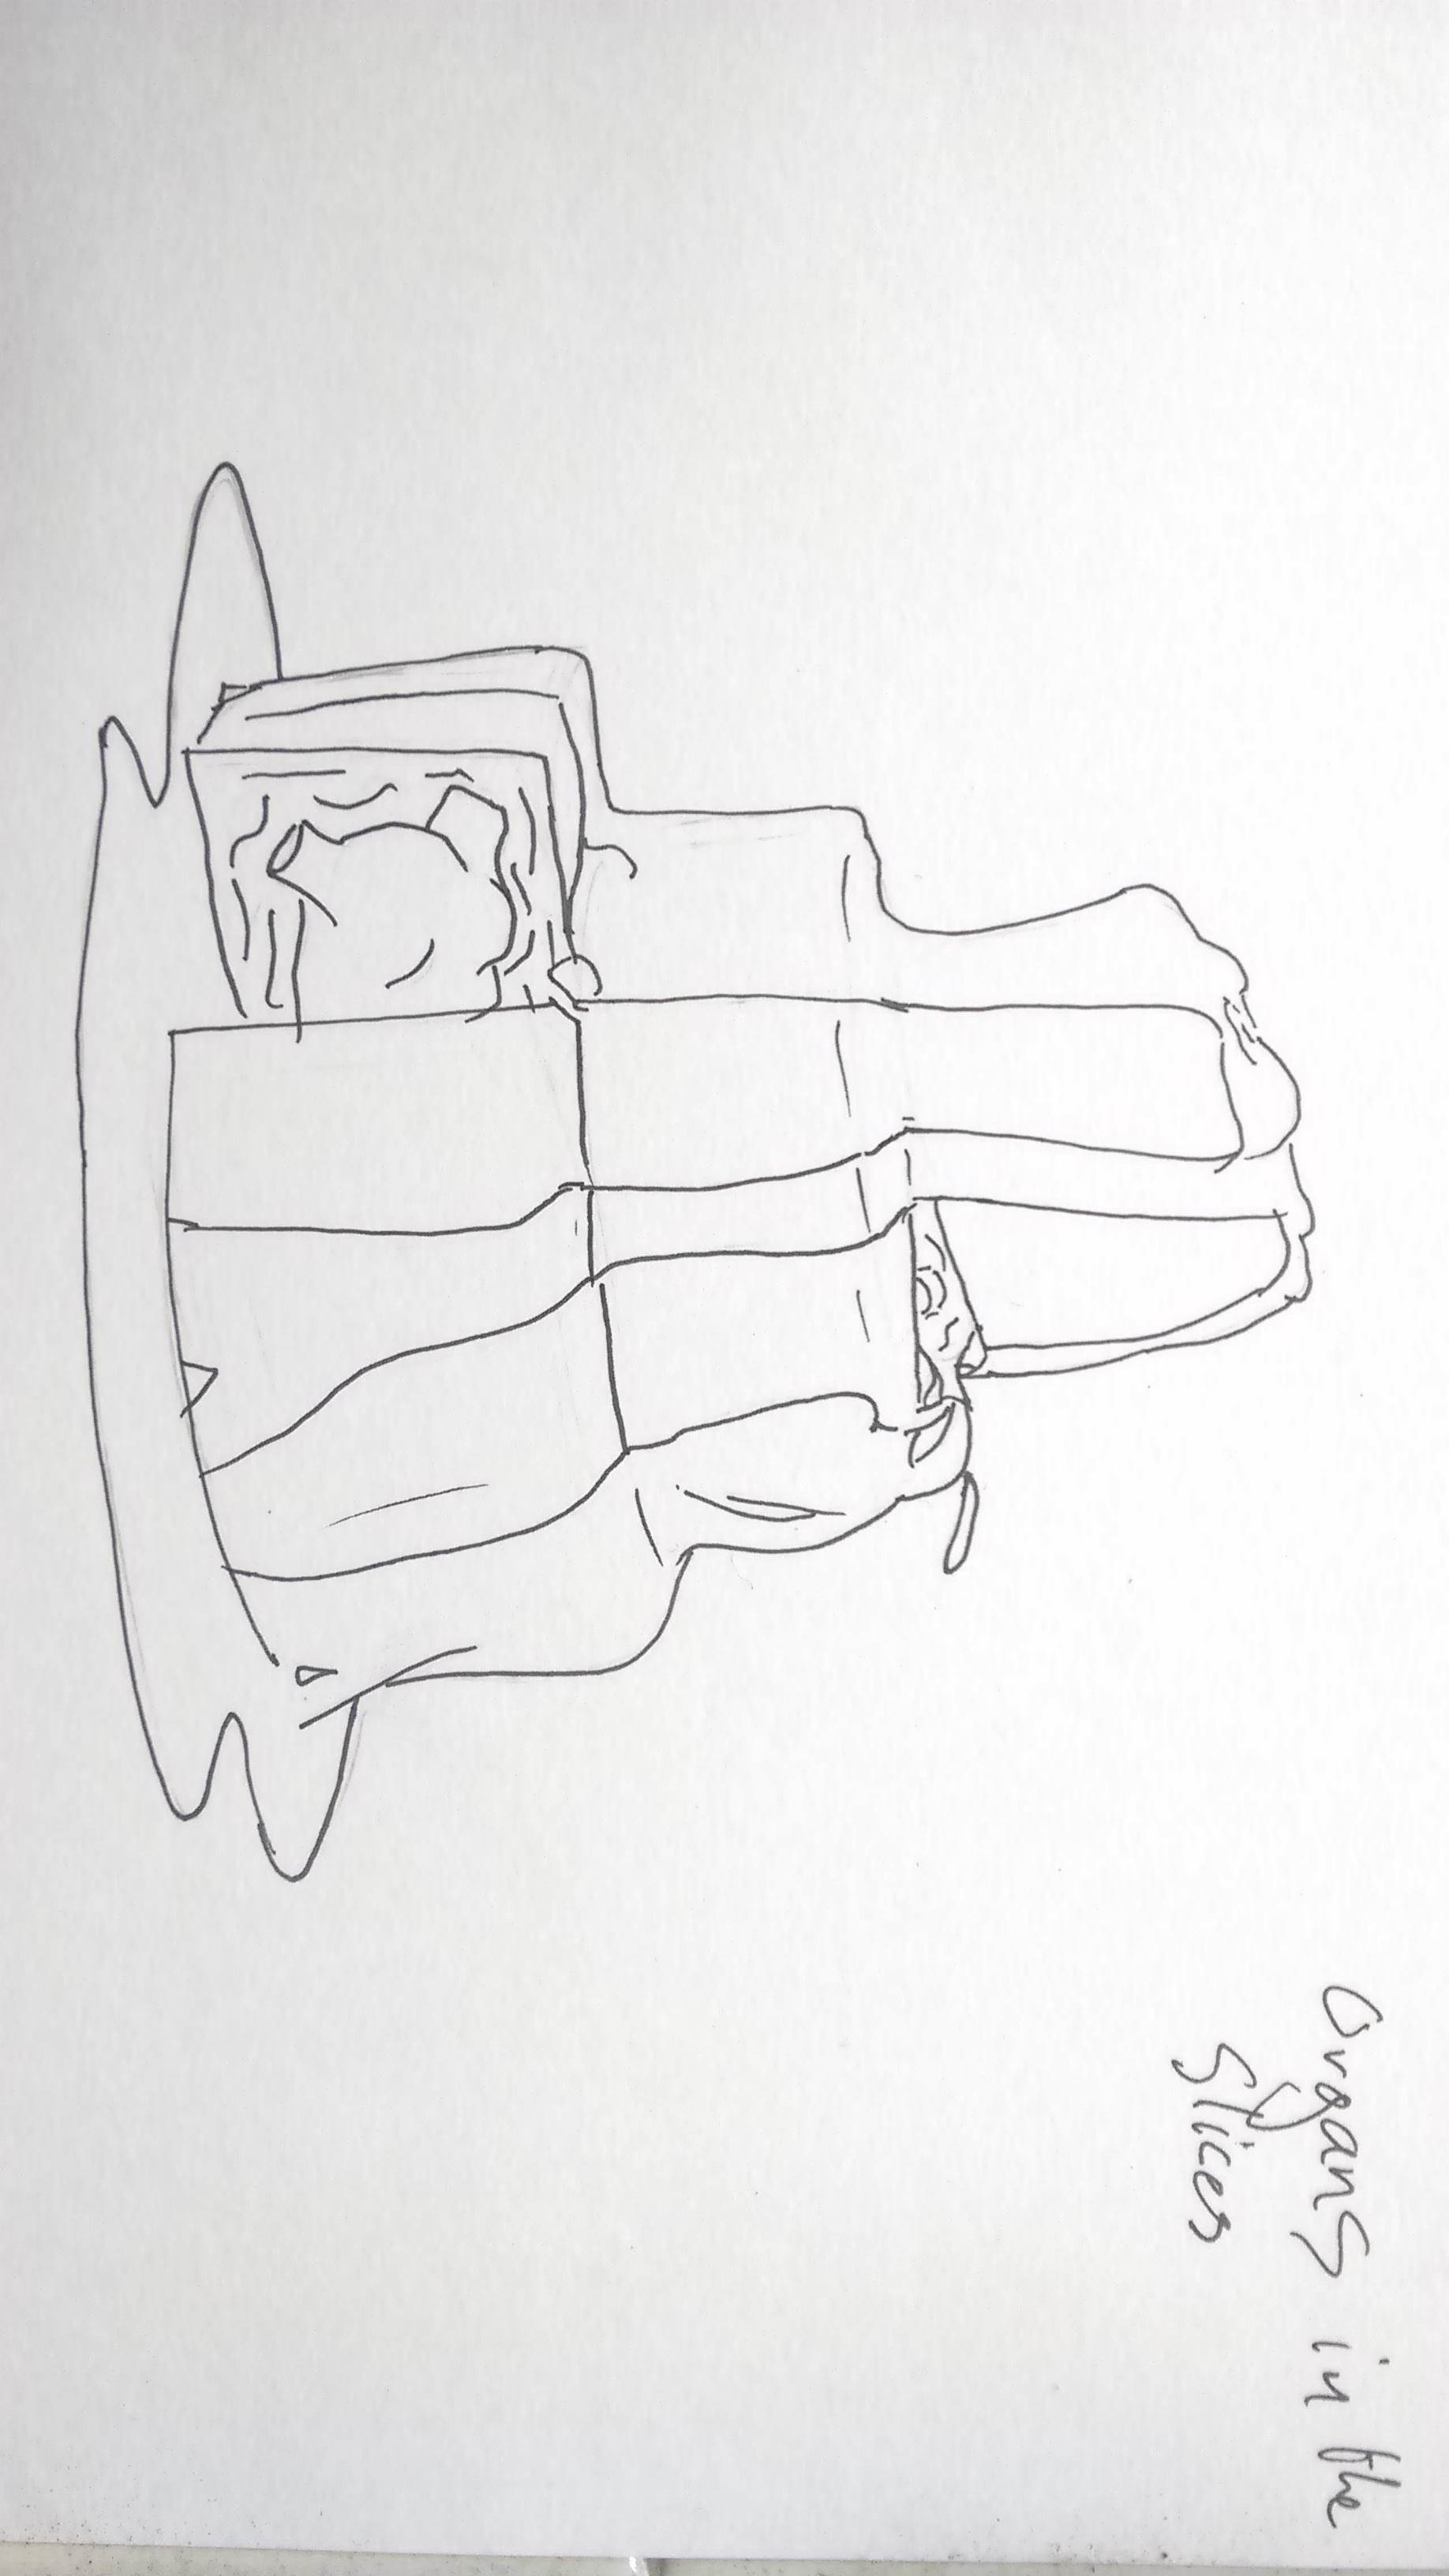 Organs in the
Slices